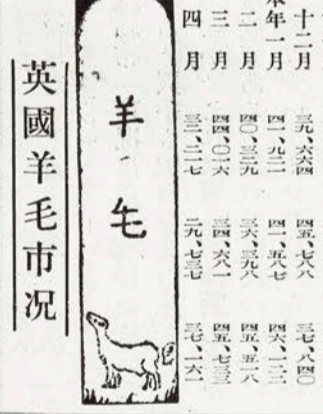 十二月 三九、六六四 四五、七七八 三七、八四〇
本年一月 四一、九二一 四一、五八七 四六、一二二
二月 四〇、三二九 三六、三九八 四五、五一八
三月 四四、〇一六 三四、六八一 四五、七三三
四月 三二、二一七 二九、七三七 三七、一六一
羊毛
英國羊毛市况